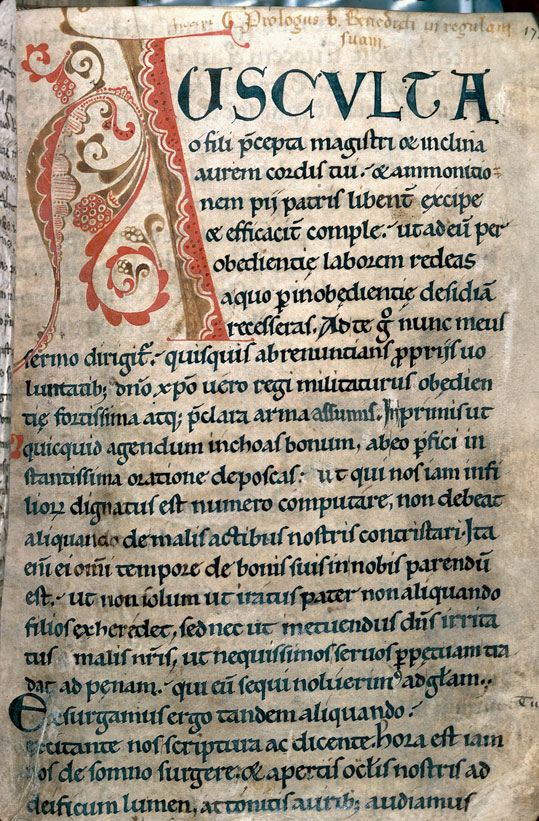 Incipit Prologus b. Benedicti in regulam
suam.
17
AUSCULTA
o fili p̄cepta magistri & inclina
aurem cordis tui. & ammonitio
nem pii patris libent̄ excipe
& efficacit̄ comple. ut ad eū per
obedientię laborem redeas
a quo p inobedientię desidiā
recesseras. Ad te g̊ nunc meus
sermo dirigit̄. quisquis abrenuntians p̄prijs uo
luntatib; dn̄o xp̄o uero regi militaturus obedien
tię fortissima atq; p̄clara arma assumis. Inprimis ut
quicquid agendum inchoas bonum, ab eo p̄fici in
stantissima oratione deposcas. ut qui nos iam in fi
liorꝝ dignatus est numero computare, non debeat
aliquando de malis actibus nostris contristari. Ita
eni ei omi tempore de bonis suis in nobis parendū
est. ut non solum ut iratus pater non aliquando
filios exheredet, sed nec ut metuendus dn̄s irrita
tus malis nr̄is, ut nequissimos seruos p̄petuam tra
dat ad penam. qui eū sequi noluerint ad gl̄am.
Exsurgamus ergo tandem aliquando.
excitante nos scriptura ac dicente. hora est iam
nos de somno surgere. & apertis oclis nostris ad
deificum lumen, attonitis aurib; audiamus